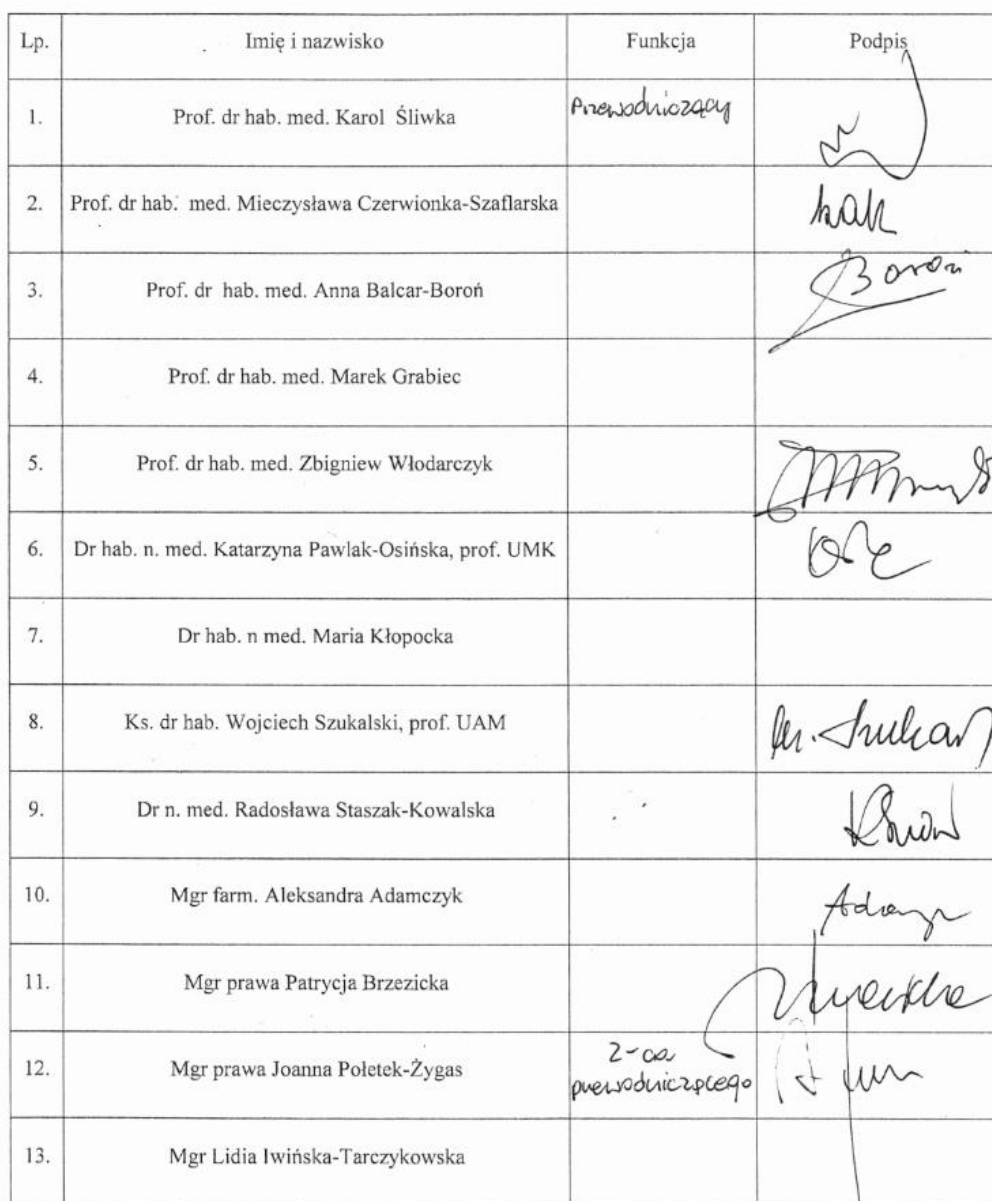 Lp. Imię i nazwisko Funkcja Podpis
1. Prof. dr hab. med. Karol Śliwka Przewodniczący
2. Prof. dr hab. med. Mieczysława Czerwionka-Szaflarska
3. Prof. dr hab. med. Anna Balcar-Boroń Boroń
4. Prof. dr hab. med. Marek Grabiec
5. Prof. dr hab. med. Zbigniew Włodarczyk
6. Dr hab. n. med. Katarzyna Pawlak-Osińska, prof. UMK
7. Dr hab. n med. Maria Kłopocka
8. Ks. dr hab. Wojciech Szukalski, prof. UAM
9. Dr n. med. Radosława Staszak-Kowalska
10. Mgr farm. Aleksandra Adamczyk
11. Mgr prawa Patrycja Brzezicka
12. Mgr prawa Joanna Połetek-Żygas Z-ca
przewodniczącego
13. Mgr Lidia Iwińska-Tarczykowska